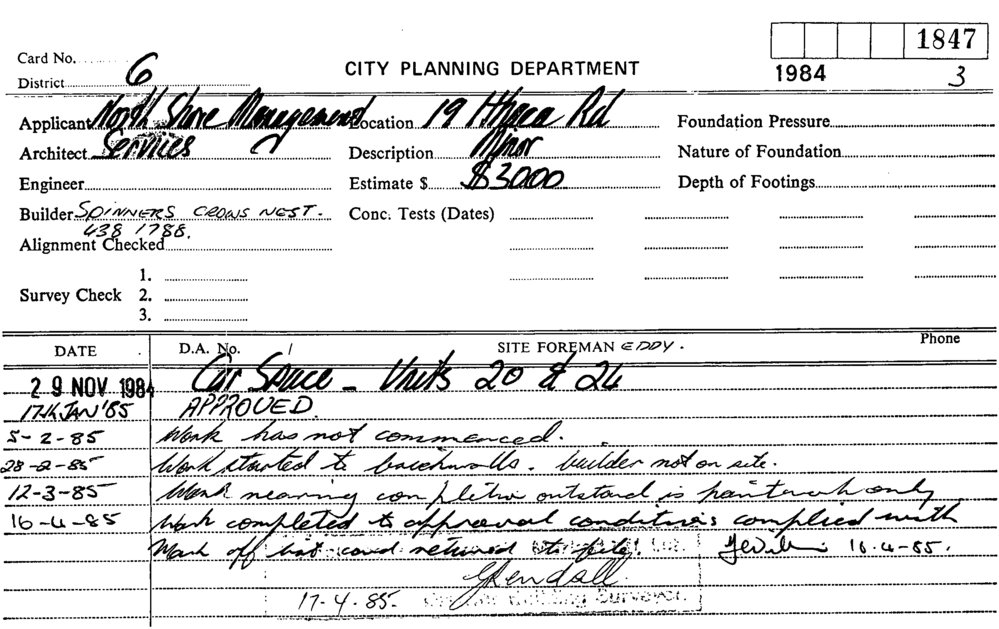 1847
Card No. 
District 6
CITY PLANNING DEPARTMENT
1984 3
Applicant North Shore Management Services
Location 19 Ithaca Rd
Foundation Pressure
Architect
Description Minor
Nature of Foundation
Engineer
Estimate $ $3000
Depth of Footings
Builder SPINNERS CROWS NEST.
438 1788.
Conc. Tests (Dates)
Alignment Checked
Survey Check 1.
2.
3.
DATE D.A. No. / SITE FOREMAN EDDY. Phone
29 NOV 1984 Car Space - Units 20 & 24
17th JAN '85 APPROVED
5-2-85 Work has not commenced.
28-2-85 Work started to brickwalls. builder not on site.
12-3-85 Work nearing completion outstand is paintwork only
16-4-85 Work completed to approval conditions complied with
Mark off list card returned to file. 16.4-85.
17.4.85. Building Surveyor.